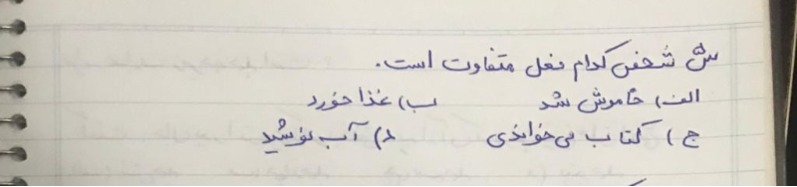 س شخص کدام فعل متفاوت است.
الف) خاموش شد ب) غذا خورد
ج) کتاب می خواندی د) آب نوشید